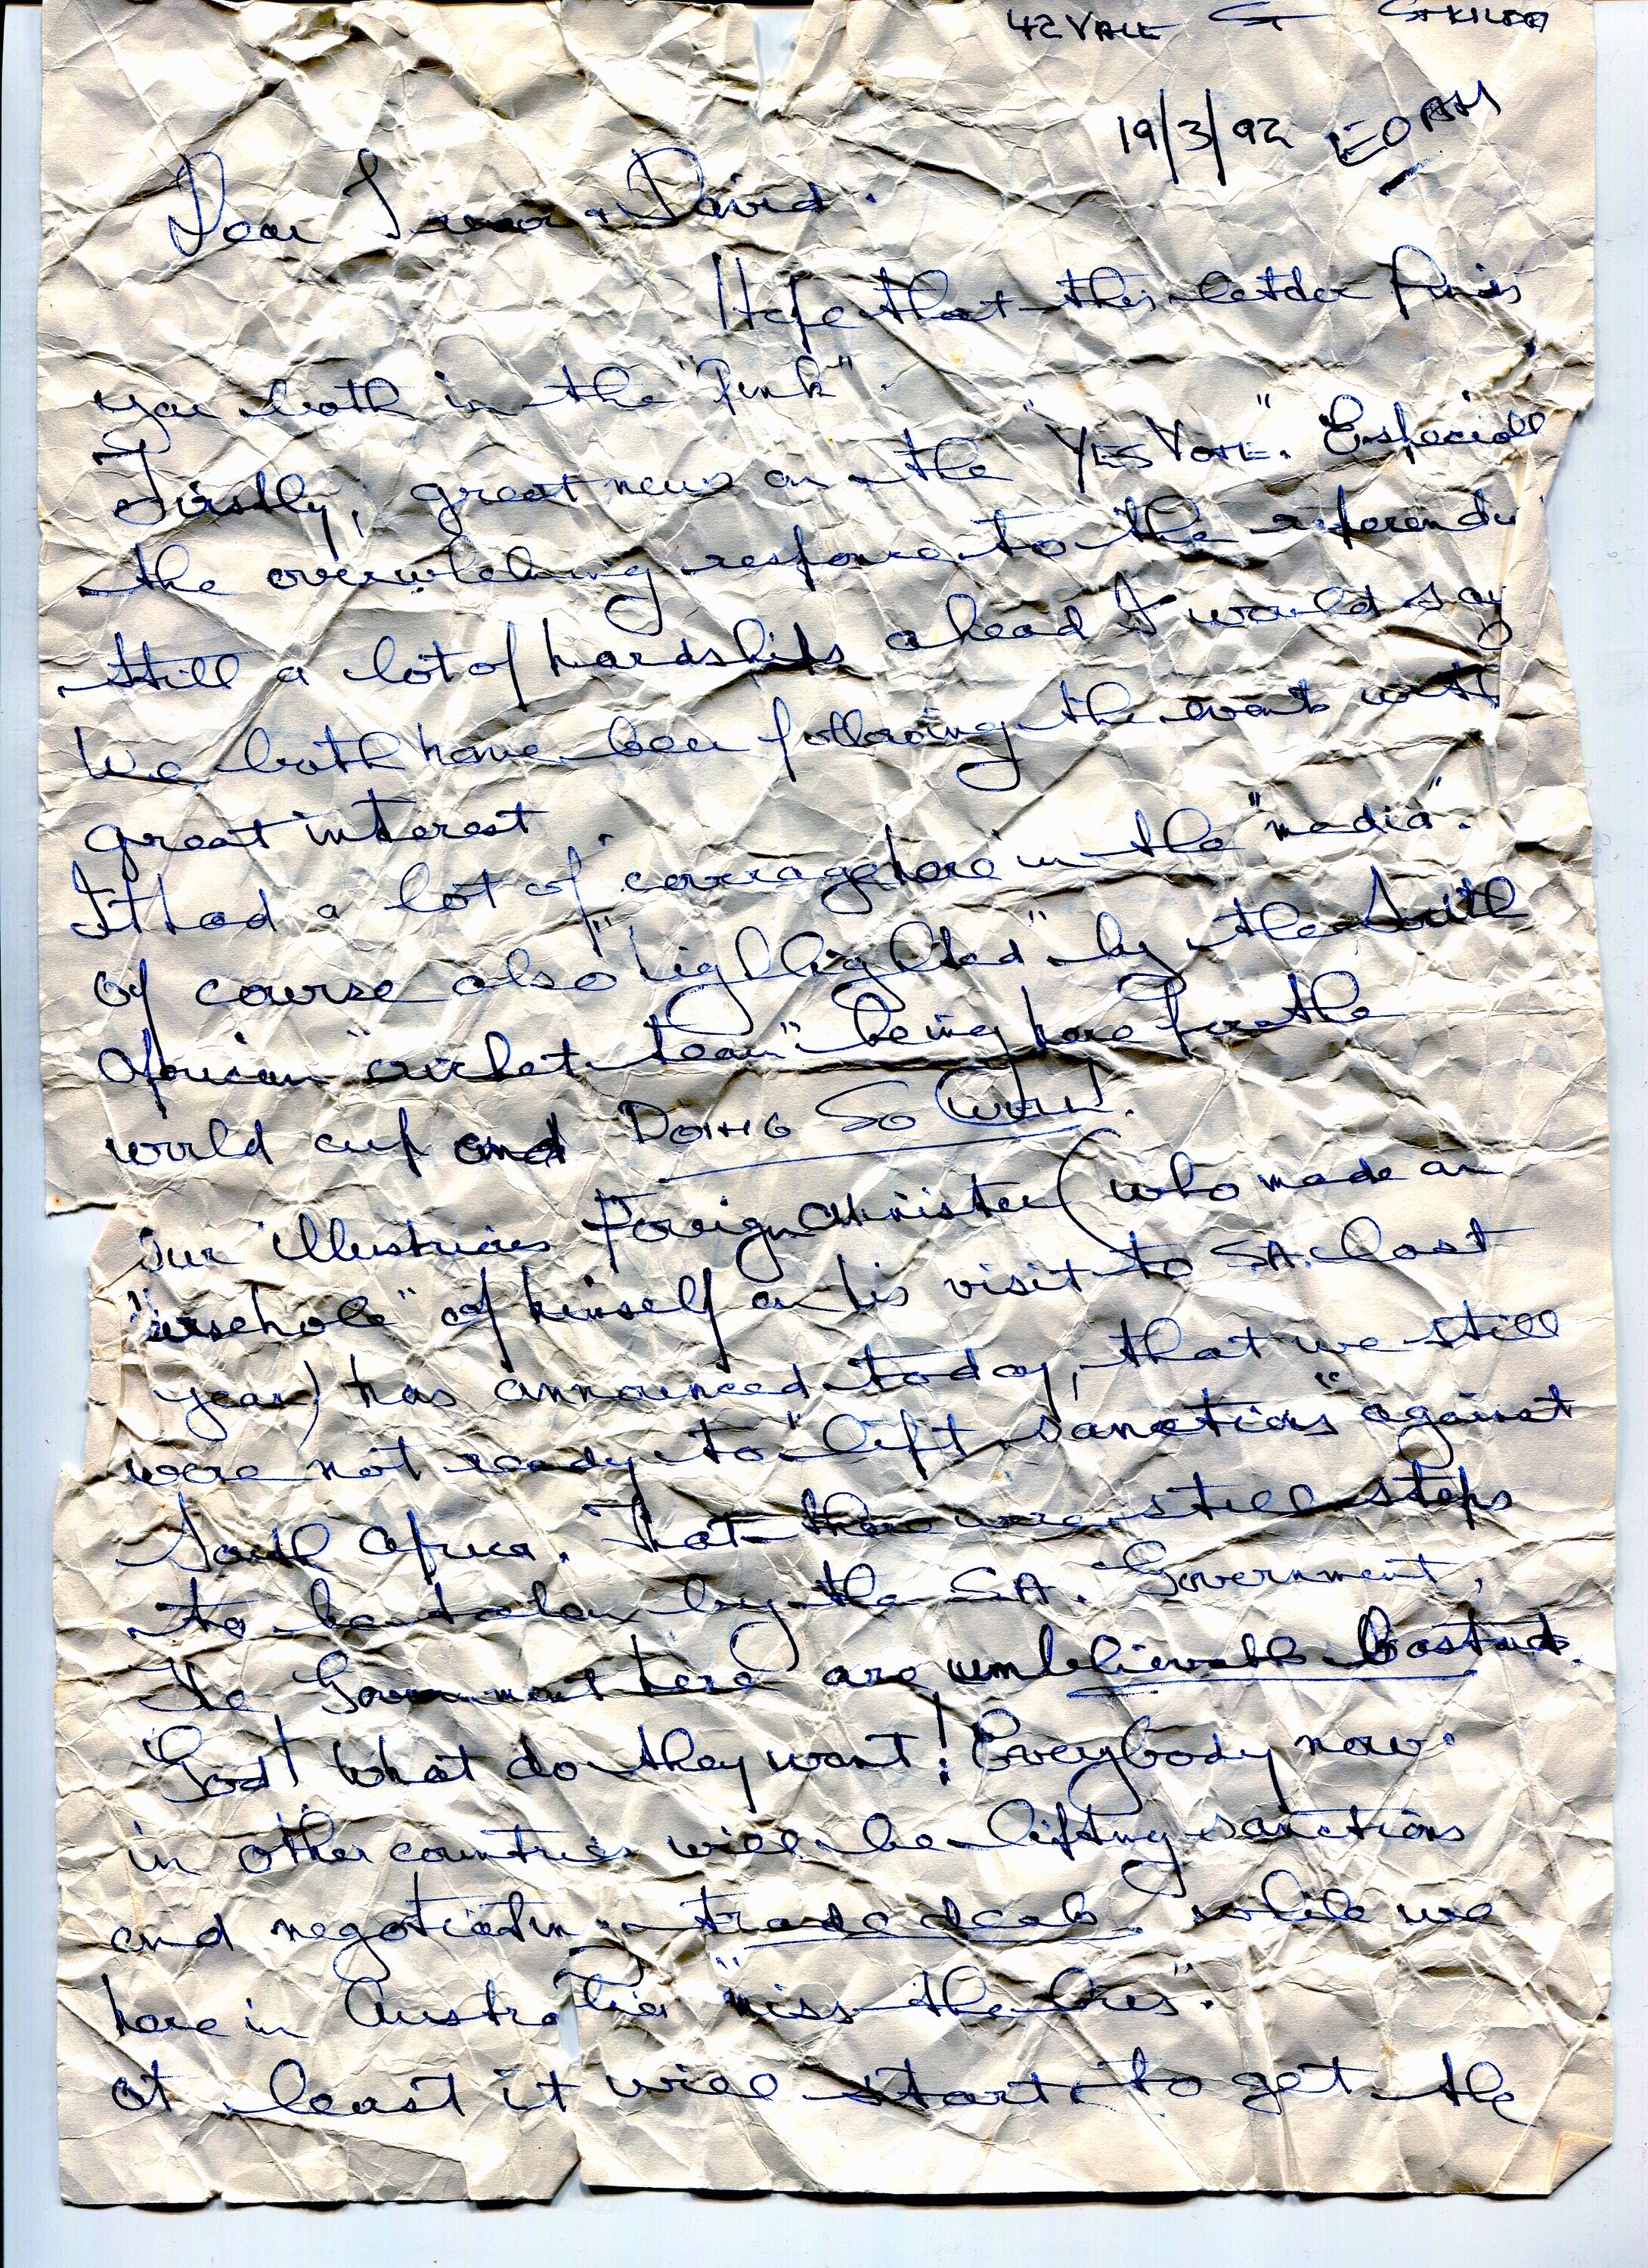 42 VALE ST ST KILDA
19/3/92 AM
Dear Trevor & David.
Hope that this letter finds
you both in the "Pink".
Firstly, great news on the "YES VOTE". Especiall
the overwhelming response to the referendu
still a lot of hardships ahead I would say
We both have been following the events with
great interest.
It had a lot of coverage here in the "media".
Of course also "highlighted" by the South
African "cricket team" being here for the
world cup and DOING SO WELL!.
Our illustrious Foreign Minister (who made an
"arsehole" of himself on his visit to SA. last
year) has announced today, that we still
were not ready to "lift sanctions" against
South Africa. That there were still steps
to be taken by the S.A. Government,
The Government here are unbelievable bastards.
God! What do they want! Everybody now
in other countries will be lifting sanctions
and negotiatin trade deals. while we
here in Australia "miss the bus".
At least it will start to get the